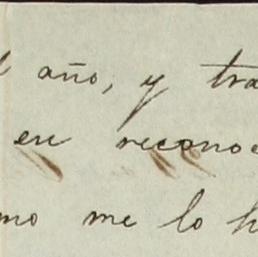 l año, y tra
en reconoc
mo me lo h